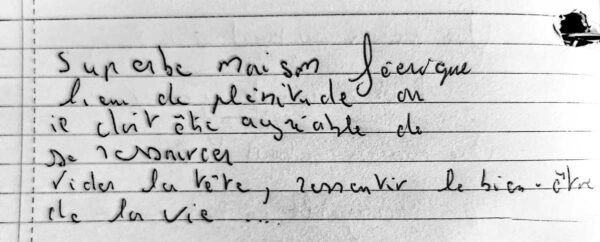 Superbe maison féerique
lieu de plénitude ou
il doit être agréable de
se ressourcer
vider la tête, ressentir le bien-être
de la vie ....